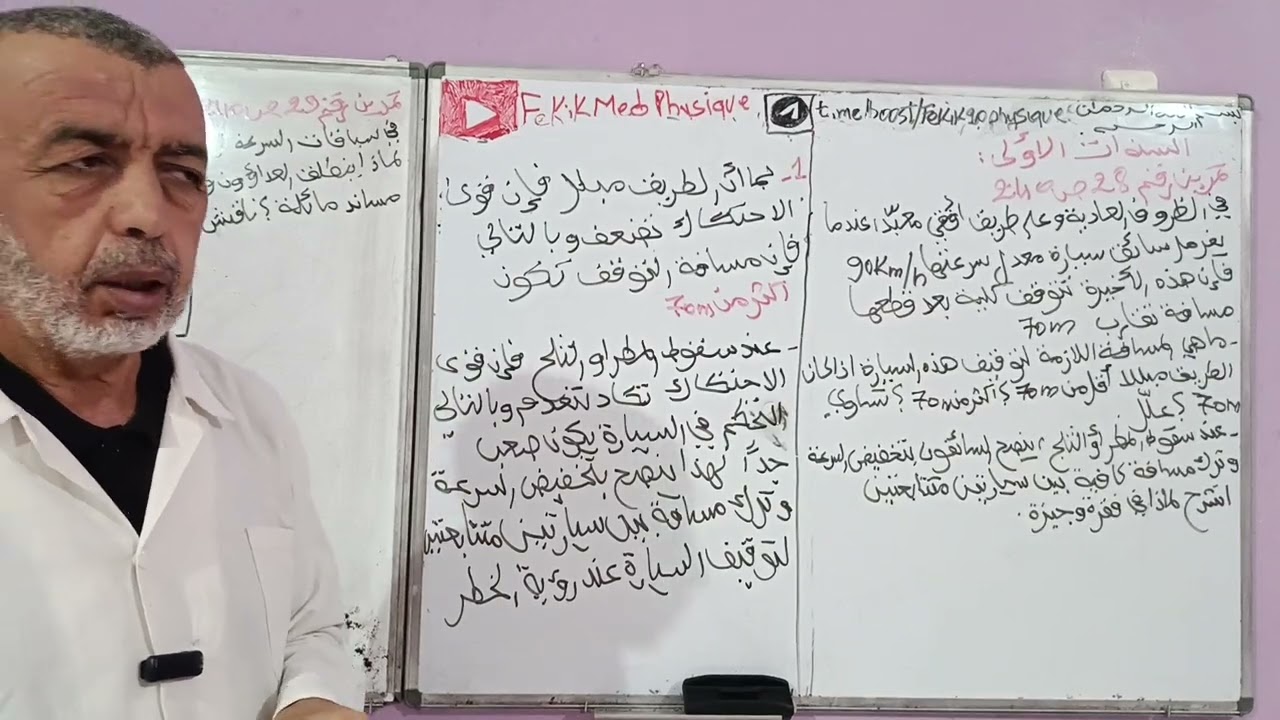 بسم الله الرحمان الرحيم
t.me/boost/Fekik90physique
السنوات الأولى:
تمرين رقم 28 ص 241
في الظروف العادية وعلى طريق أفقي معبّد، عندما
يفرمل سائق سيارة معدل سرعتها 90Km/h
فإن هذه الأخيرة تتوقف كلية بعد قطعها
مسافة تقارب 70m
- ماهي المسافة اللازمة لتوقف هذه السيارة اذا كان
الطريق مبللا أقل من 70m؟ أكثر من 70m؟ تساوي
70m؟ علّل
- عند سقوط المطر أو الثلج، ينصح السائقون بتخفيض السرعة
وترك مسافة كافية بين سيارتين متتابعتين
اشرح لماذا في فقرة وجيزة.
FeKiK Med Physique
1- بما أن الطريق مبللا فإن قوى
الاحتكاك تضعف وبالتالي
فإن مسافة التوقف تكون
أكثر من 70m
- عند سقوط المطر او الثلج فإن قوى
الاحتكاك تكاد تنعدم وبالتالي
التحكم في السيارة يكون صعب
جدًا لهذا ينصح بتخفيض السرعة
وترك مسافة بين سيارتين متتابعتين
لتوقيف السيارة عند رؤية الخطر
تمرين رقم 29 ص
في سباقات السرعة
لماذا ينطلق العداؤون
مساند مائلة؟ ناقش